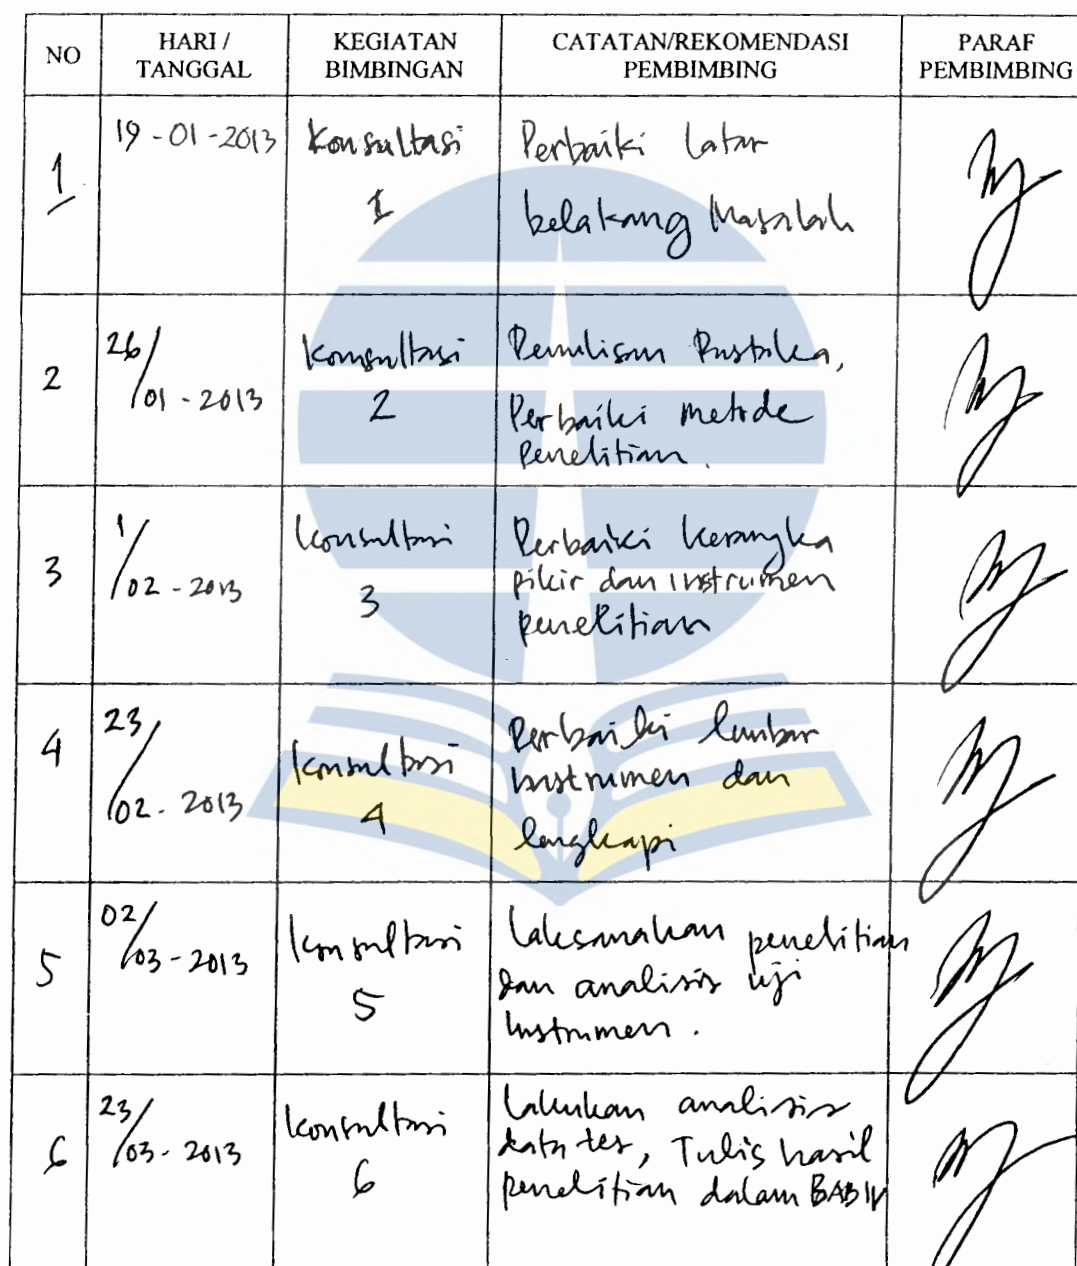 NO HARI / TANGGAL KEGIATAN BIMBINGAN CATATAN/REKOMENDASI PEMBIMBING PARAF PEMBIMBING
1 19-01-2013 Konsultasi 1 Perbaiki latar
belakang Masalah
2 26/01-2013 Konsultasi 2 Penulisan Pustaka,
Perbaiki metode
Penelitian.
3 1/02-2013 Konsultasi 3 Perbaiki Kerangka
pikir dan instrumen
penelitian
4 23/02-2013 Konsultasi 4 Perbaiki lembar
instrumen dan
lengkapi
5 02/03-2013 Konsultasi 5 Laksanakan penelitian
dan analisis uji
Instrumen.
6 23/03-2013 Konsultasi 6 Lakukan analisis
data tes, Tulis hasil
penelitian dalam BAB IV